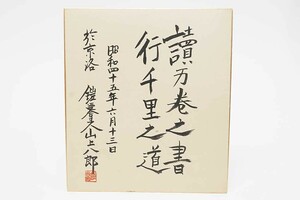 讀万卷之書
行千里之道
昭和四十五年六月十三日
於京洛 鎧軒 山上八郎